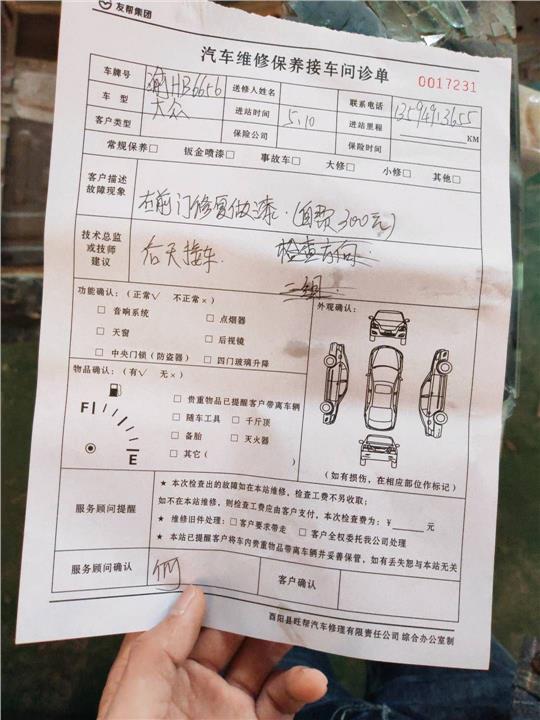 友帮集团
汽车维修保养接车问诊单
0017231
车牌号 渝HB6656 送修人姓名 联系电话
车型 大众 进站时间 5.10 进站里程 KM
客户类型 保险公司 保险时间
常规保养□ 钣金喷漆□ 事故车□ 大修□ 小修□ 其他□
客户描述
故障现象
右前门修复做漆.(自费300元)
技术总监
或技师
建议
后天接车. 检查方向.
二组.
功能确认:(正常√ 不正常×)
□ 音响系统 □ 点烟器
□ 天窗 □ 后视镜
□ 中央门锁(防盗器) □ 四门玻璃升降
外观确认:
物品确认:(有√ 无×)
□ 贵重物品已提醒客户带离车辆
□ 随车工具 □ 千斤顶
□ 备胎 □ 灭火器
□ 其它( )
F
E
(如有损伤,在相应部位作标记)
服务顾问提醒
★ 本次检查出的故障如在本站维修,检查工费不另收取;
如不在本站维修,则检查工费应由客户支付,本次检查费为:¥ 元
★ 维修旧件处理:□ 客户要求带走 □ 客户全权委托我公司处理
★ 本站已提醒客户将车内贵重物品带离车辆并妥善保管,如有丢失恕与本站无关
服务顾问确认 何 客户确认
酉阳县旺帮汽车修理有限责任公司 综合办公室制